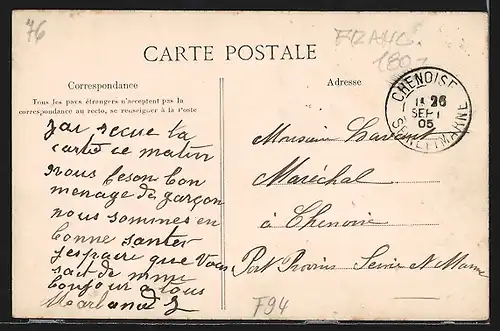 76
CARTE POSTALE
FRANC.
180
Correspondance
Adresse
Tous les pays étrangers n'acceptent pas la
correspondance au recto, se renseigner à la Poste
CHENOISE
26
SEPT
05
SEINE ET MARNE
jai recue la
carte ce matin
nous feson bon
menage de garçon
nous sommes en
bonne santer
jespaire que Vous
sait de mme
bonjour a tous
Monsieur
Maréchal
à Chenoise
Par Provins Seine et Marne
F94